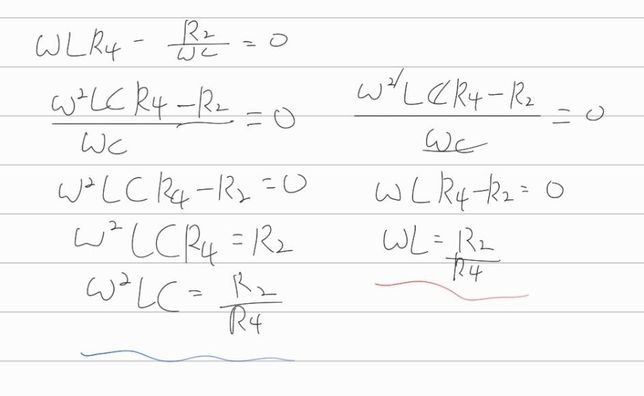 ωLR4 - R2/ωC = 0
(ω²LCR4 - R2)/ωC = 0
ω²LCR4 - R2 = 0
ω²LCR4 = R2
ω²LC = R2/R4
(ω²LCR4 - R2)/ωC = 0
ωLR4 - R2 = 0
ωL = R2/R4